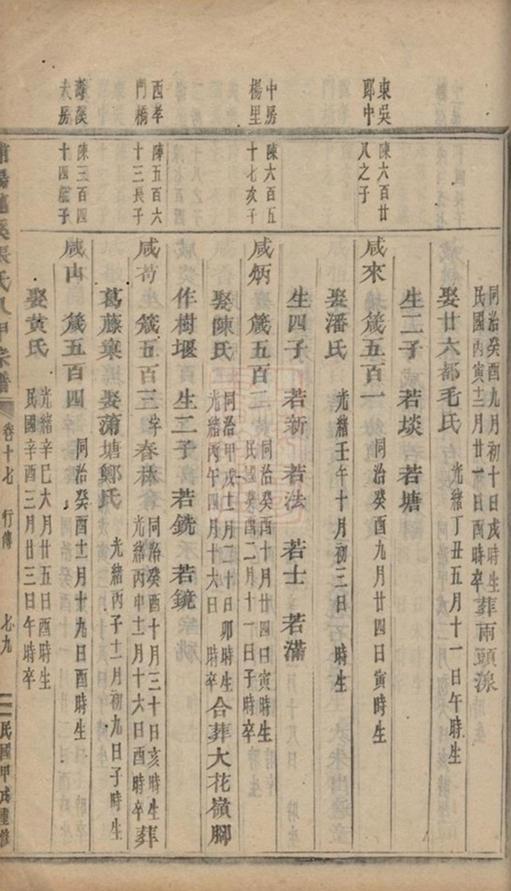 同治癸酉九月初十日戌時生
民國丙寅十二月廿一日酉時卒
葬雨頭湶
娶廿六都毛氏 光緒丁丑五月十一日午時生
生二子 若埮 若塘
東吳
鄖中
陳六百廿
八之子
咸來 箴五百一 同治癸酉九月廿四日寅時生
娶潘氏 光緒壬午十月初三日 時生
生四子 若新 若法 若士 若滿
中房
楊里
陳六百五
十七次子
咸炳 箴五百二
同治癸酉十月廿四日寅時生
民國癸酉二月十一日子時卒
娶陳氏
同治甲戌十二月三十日卯時生
光緒丙午四月十六日 時卒
合葬大花嶺腳
作樹堰 生二子 若銑 若鏡
西孝
門橋
陣五百六
十三長子
咸苟 箴五百三 字春林
同治癸酉十月三十日亥時生
光緒丙申十二月十六日酉時卒
葬
葛藤窠 娶蒲塘鄭氏 光緒丙子十二月初九日子時生
大房
陳三百四
十四繼子
咸山 箴五百四 同治癸酉十二月十九日酉時生
娶黃氏
光緒辛巳六月廿五日酉時生
民國辛酉三月廿三日午時卒
張氏八甲宗譜 卷十七 行傳 七九 民國甲戌重修